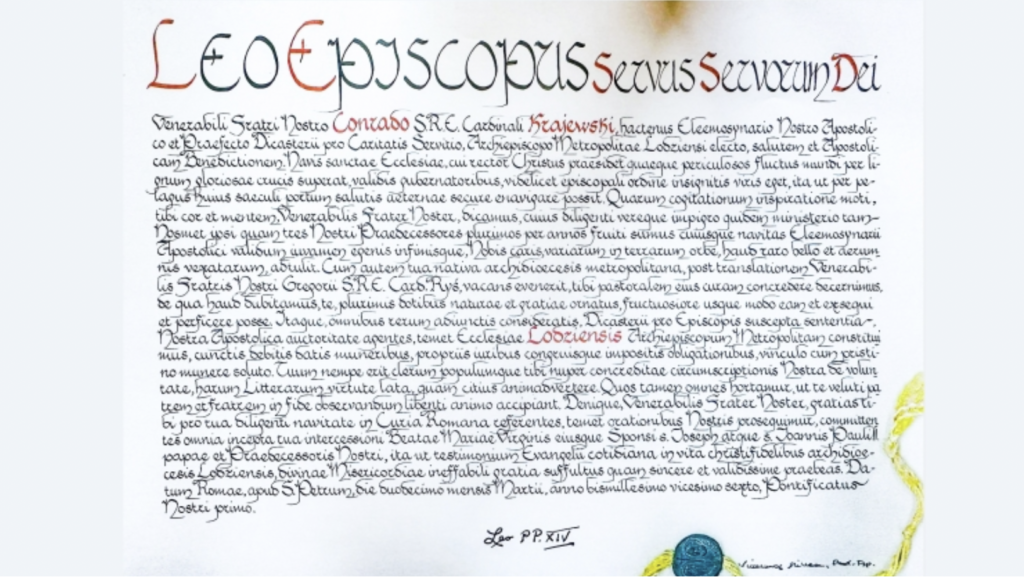 Leo Episcopus Servus Servorum Dei
Venerabili Fratri Nostro Conrado S.R.E. Cardinali Krajewski, hactenus Eleemosynario Nostro Apostoli-
co et Praefecto Dicasterii pro Caritatis Servitio, Archiepiscopo Metropolitae Lodziensi electo, salutem et Apostoli-
cam Benedictionem. Navis sanctae Ecclesiae, cui rector Christus praesidet quaeque periculosos fluctus mundi per li-
gnum gloriosae crucis superat, validis gubernatoribus, videlicet episcopali ordine insignitis viris eget, ita ut per pe-
lagus huius saeculi portum salutis aeternae secure enavigare possit. Quarum cogitationum inspiratione moti,
tibi cor et mentem, Venerabilis Frater Noster, dicamus, cuius diligenti vereque impigro quidem ministerio tam
Nosmet ipsi quam tres Nostri Praedecessores plurimos per annos fruiti sumus cuiusque navitas Eleemosynarii
Apostolici validum iuvamen egenis infimisque, Nobis caris, variarum in terrarum orbe, haud raro bello et aerum-
nis vexatarum, attulit. Cum autem tua nativa archidioecesis metropolitana, post translationem Venerabi-
lis Fratris Nostri Gregorii S.R.E. Card. Ryś, vacans evenerit, tibi pastoralem eius curam concredere decernimus,
de qua haud dubitamus, te, plurimis dotibus naturae et gratiae ornatus, fructuosiore usque modo eam et exsequi
et perficere posse. Itaque, omnibus rerum adiunctis consideratis, Dicasterii pro Episcopis suscepta sententia,
Nostra Apostolica auctoritate agentes, temet Ecclesiae Lodziensis Archiepiscopum Metropolitam constitui
mus, cunctis debitis datis muneribus, propriis iuribus congruisque impositis obligationibus, vinculo cum pristi-
no munere soluto. Tuum nempe erit clerum populumque tibi nuper concreditae circumscriptionis Nostra de volun
tate, harum Litterarum virtute lata, quam citius animadvertere. Quos tamen omnes hortamur, ut te veluti pa
trem et fratrem in fide observandum libenti animo accipiant. Denique, Venerabilis Frater Noster, gratias ti-
bi pro tua diligenti navitate in Curia Romana referentes, temet orationibus Nostris prosequimur, committen
tes omnia incepta tua intercessioni Beatae Mariae Virginis eiusque Sponsi s. Joseph atque s. Joannis Pauli II
papae et Praedecessoris Nostri, ita ut testimonium Evangelii cotidiana in vita christifidelibus archidioe-
cesis Lodziensis, divinae Misericordiae ineffabili gratia suffultus quam sincere et validissime praebeas. Da-
tum Romae, apud S. Petrum, die duodecimo mensis Martii, anno bismillesimo vicesimo sexto, Pontificatus
Nostri primo.
Leo PP. XIV